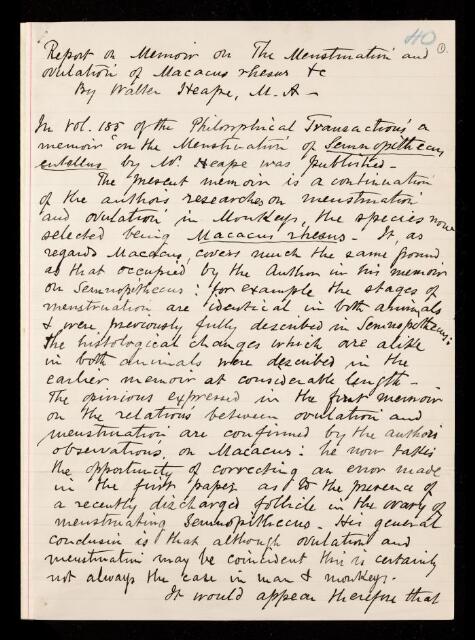 40 ①.
Report on Memoir on The Menstruation and
ovulation of Macacus rhesus &c
By Walter Heape, M.A -
In Vol. 185 of the Philosophical Transactions a
memoir on the Menstruation of Semnopithecus
entellus by Mr. Heape was published -
The present memoir is a continuation
of the authors researches on menstruation
and ovulation in Monkeys, the species now
selected being Macacus rhesus - It as
regards Macacus, covers much the same ground
as that occupied by the author in his memoir
on Semnopithecus: for example the stages of
menstruation are identical in both animals
& were previously fully described in Semnopithecus:
the histological changes which are alike
in both animals were described in the
earlier memoir at considerable length -
The opinions expressed in the first memoir
on the relations between ovulation and
menstruation are confirmed by the authors
observations on Macacus: he now takes
the opportunity of correcting an error made
in the first paper as to the presence of
a recently discharged follicle in the ovary of
menstruating Semnopithecus - His general
conclusion is that although ovulation and
menstruation may be coincident this is certainly
not always the case in man & monkeys.
It would appear therefore that